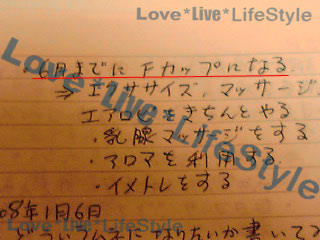 Love*Live*LifeStyle
6月までに Fカップになる
⇒エクササイズ、マッサージ、
エアロビをきちんとやる
・乳腺マッサージをする
・アロマを利用する
・イメトレをする
08年1月6日
Love*Live*LifeStyle
Love*Live*LifeStyle